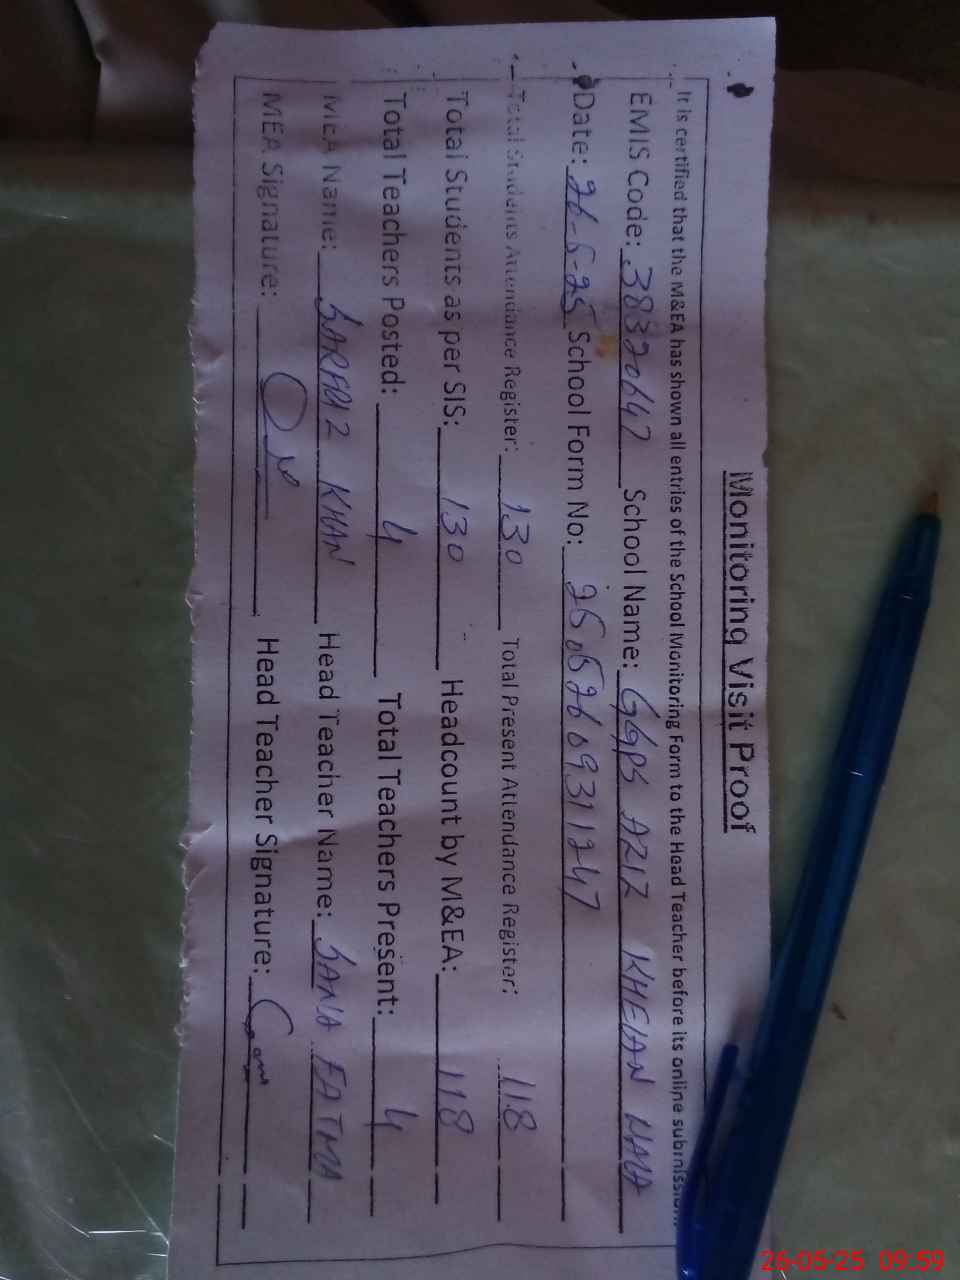 Monitoring Visit Proof
It is certified that the M&EA has shown all entries of the School Monitoring Form to the Head Teacher before its online submission.
EMIS Code: 38320647 School Name: GGPS AZIZ KHELAN NAMA
Date: 26-5-25 School Form No: 25052609311247
Total Students Attendance Register: 130 Total Present Attendance Register: 118
Total Students as per SIS: 130 Headcount by M&EA: 118
Total Teachers Posted: 4 Total Teachers Present: 4
MEA Name: SARFARAZ KHAN Head Teacher Name: SANA FATMA
MEA Signature: Head Teacher Signature:
26-05-25 09:59